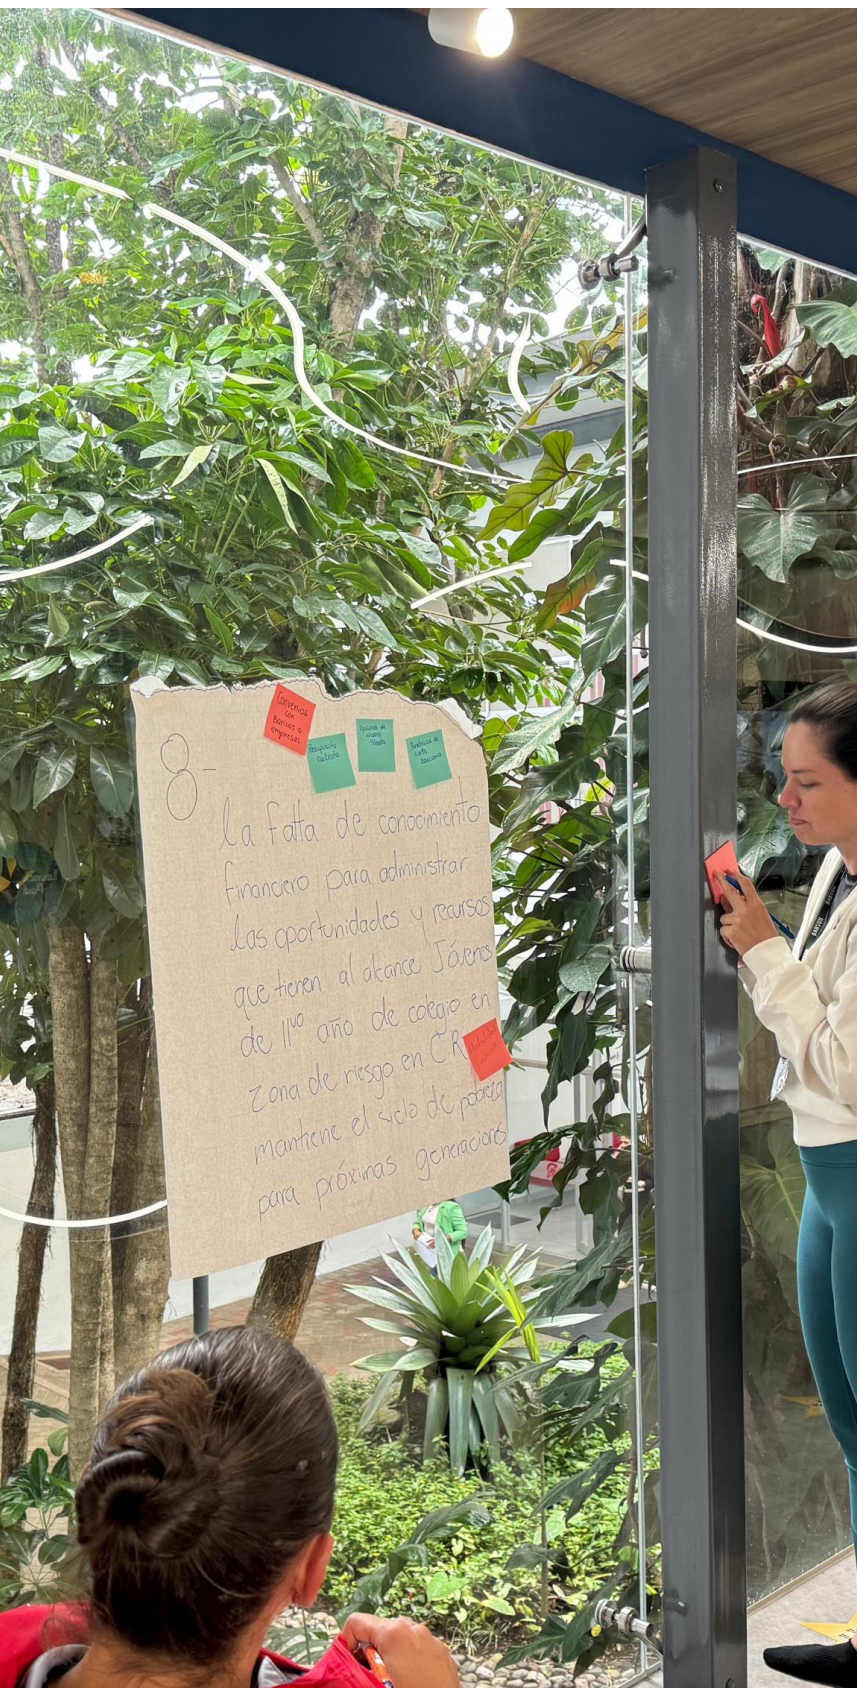 Convenios
con
Bancos o
empresas
Presupuesto
realista
ahorro
cuenta
bancaria
8-
la falta de conocimiento
financiero para administrar
las oportunidades y recursos
que tienen al alcance Jóvenes
de 11vo año de colegio en
zona de riesgo en C.R
mantiene el siclo de pobreza
para próximas generaciones
BABSON